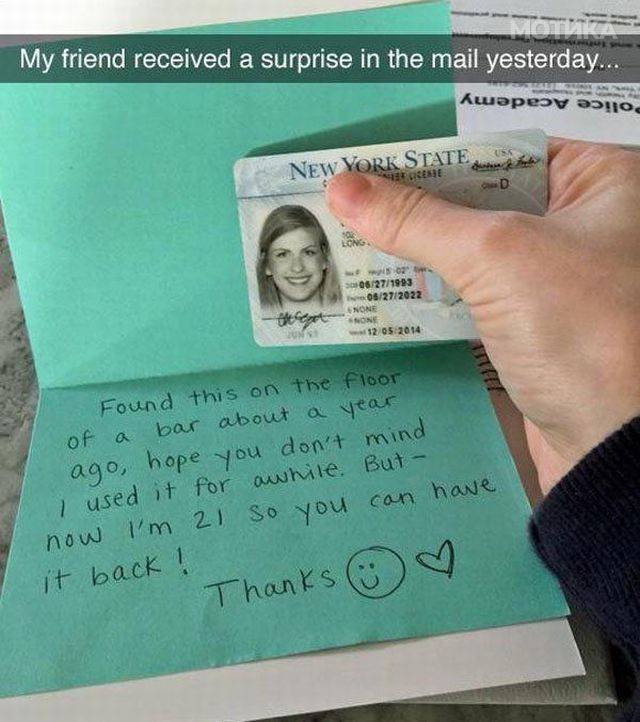 МОТИКА
My friend received a surprise in the mail yesterday...
Police Academy
NEW YORK STATE
USA
D
LONG
06/27/1993
06/27/2022
NONE
NONE
12/05/2014
Found this on the floor
of a bar about a year
ago, hope you don't mind
I used it for awhile. But -
now I'm 21 so you can have
it back!
Thanks